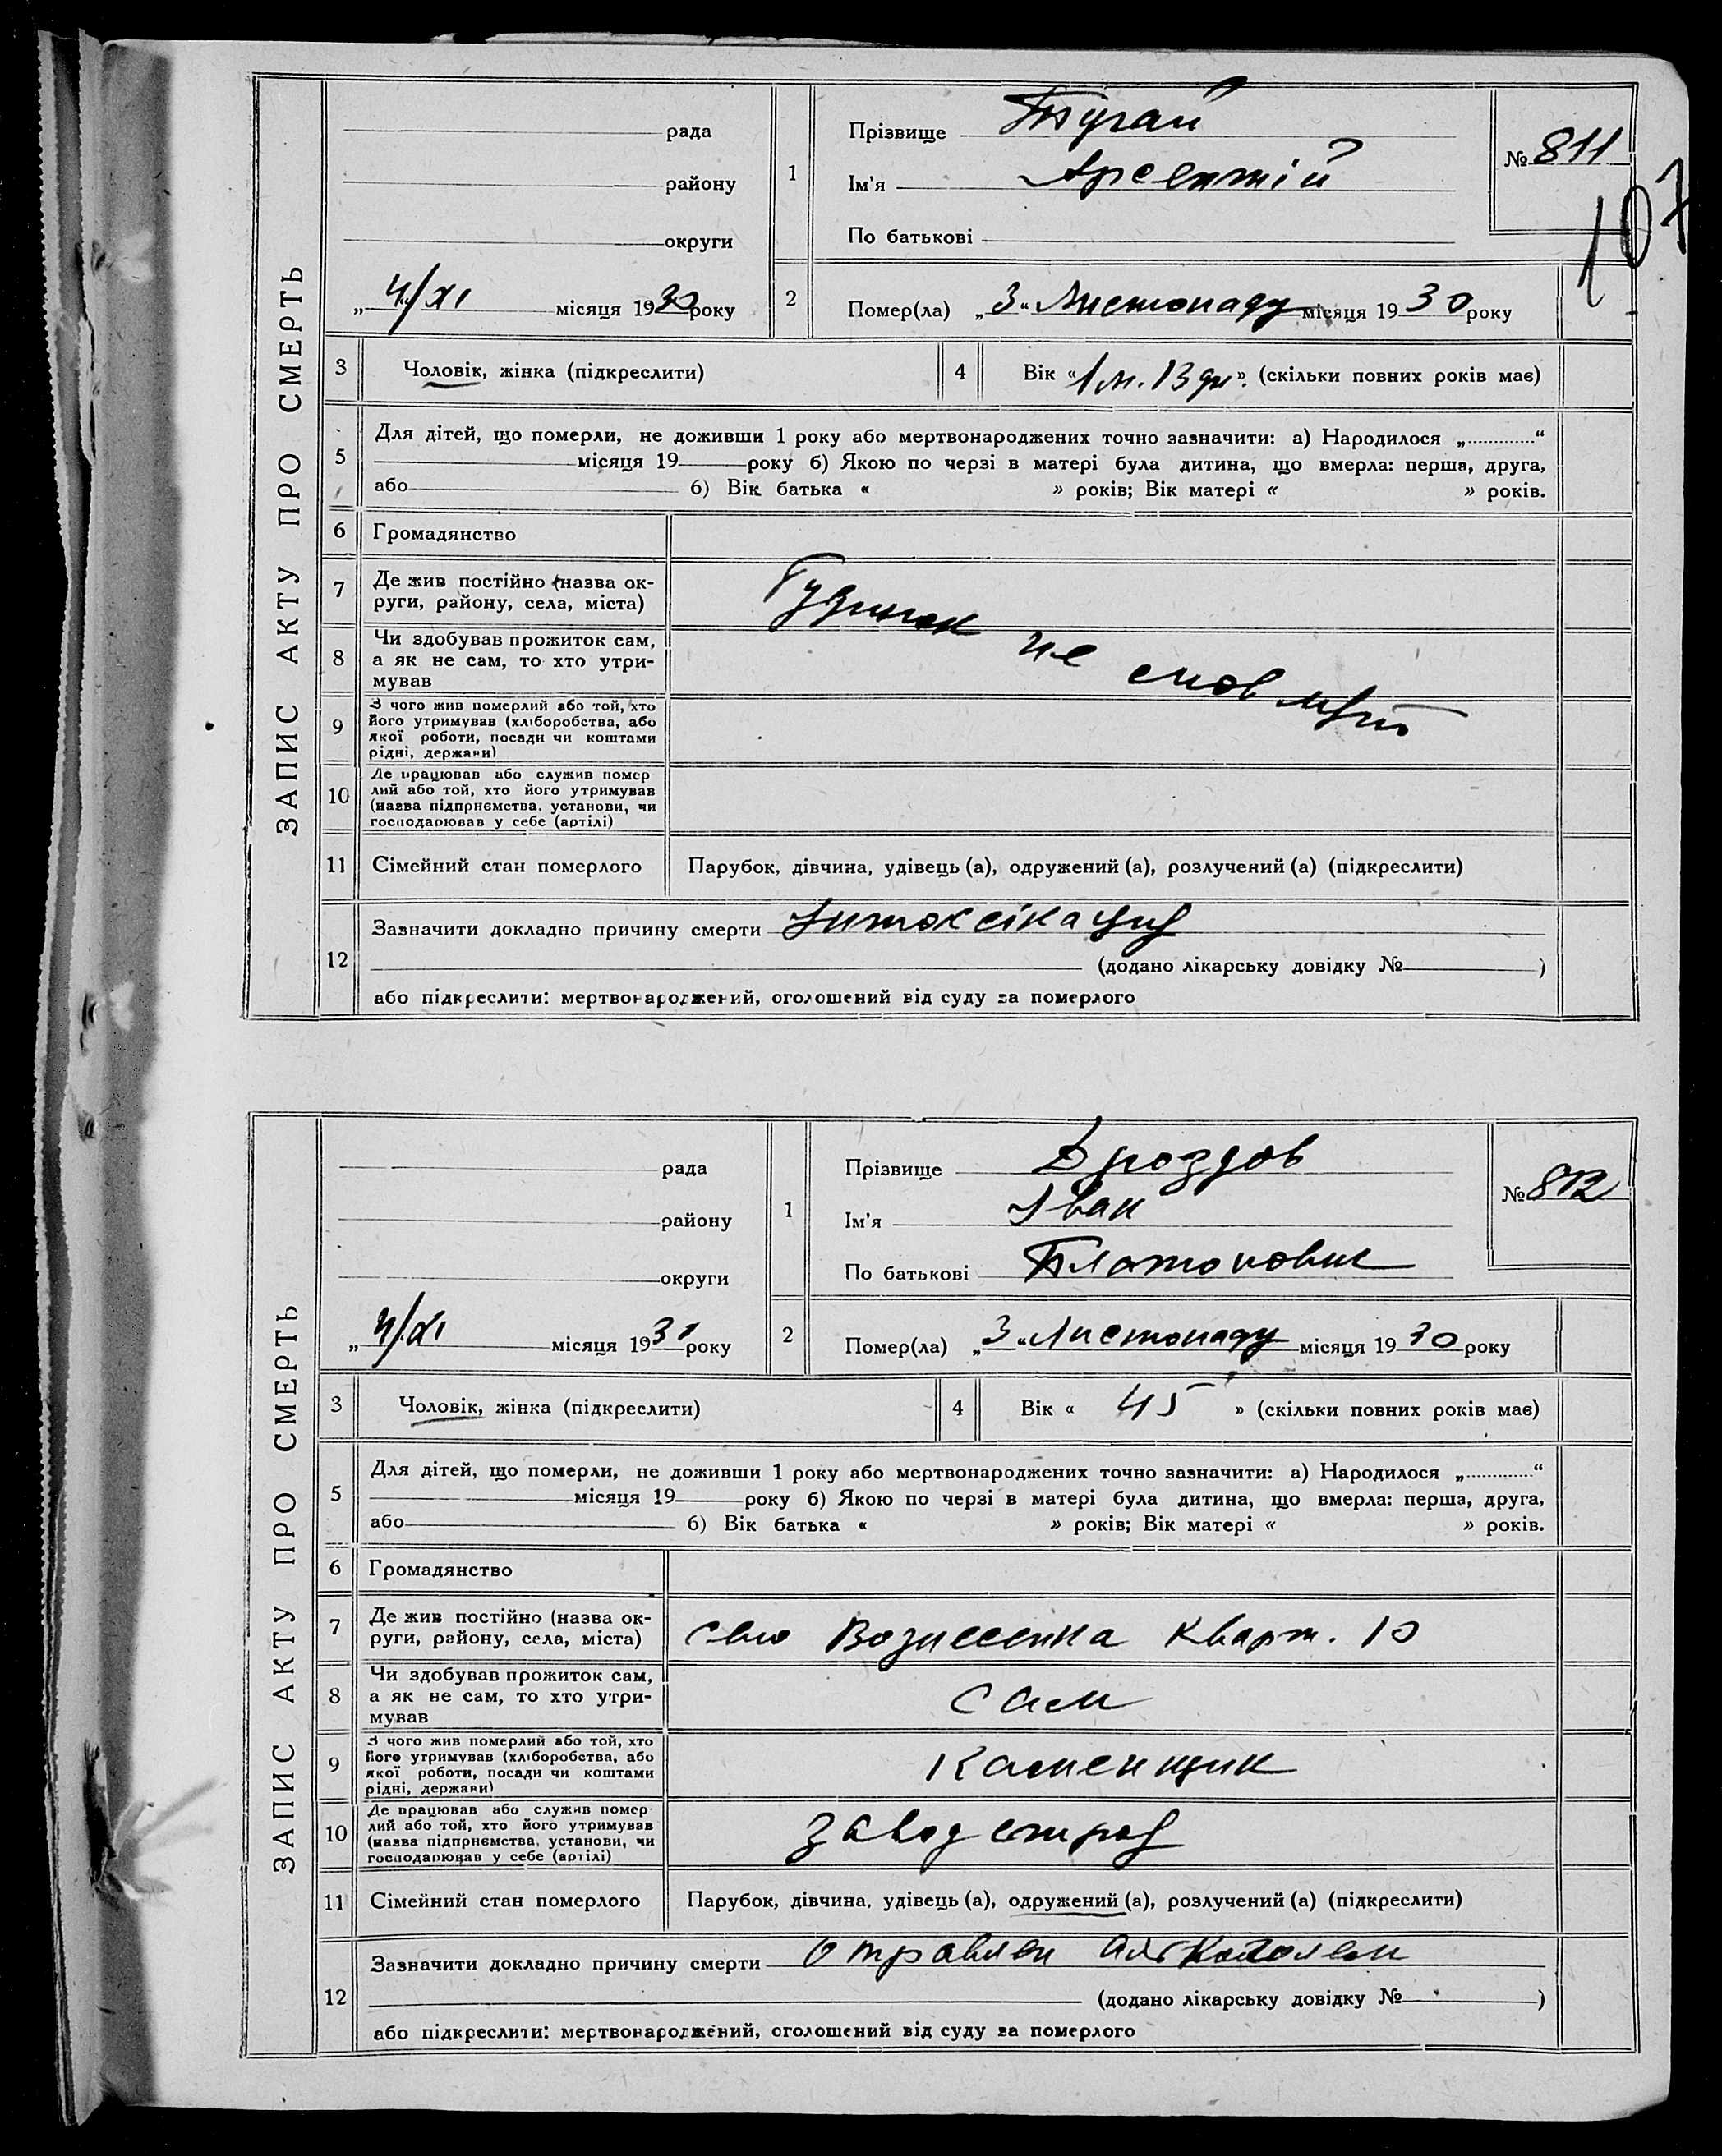 ЗАПИС АКТУ ПРО СМЕРТЬ
рада
району
округи
„4/XI місяця 1930 року
1
Прізвище Тугай
Ім'я Арсентій
По батькові
№ 811
107
2
Помер(ла) „3“ Листопаду місяця 1930 року
3
Чоловік, жінка (підкреслити)
4
Вік «1 м. 13 дн». (скільки повних років має)
5
Для дітей, що померли, не доживши 1 року або мертвонароджених точно зазначити: а) Народилося „..............“
місяця 19 року б) Якою по черзі в матері була дитина, що вмерла: перша, друга,
або б) Вік батька « » років; Вік матері « » років.
6
Громадянство
7
Де жив постійно (назва ок-
руги, району, села, міста)
8
Чи здобував прожиток сам,
а як не сам, то хто утри-
мував
не
9
З чого жив померлий або той, хто
його утримував (хліборобства, або
якої роботи, посади чи коштами
рідні, держави)
10
Де працював або служив помер
лий або той, хто його утримував
(назва підприємства, установи, чи
господарював у себе (артілі)
11
Сімейний стан померлого
Парубок, дівчина, удівець (а), одружений (а), розлучений (а) (підкреслити)
12
Зазначити докладно причину смерти Інтоксікация
(додано лікарську довідку № )
або підкреслити: мертвонароджений, оголошений від суду за померлого
ЗАПИС АКТУ ПРО СМЕРТЬ
рада
району
округи
„4/XI місяця 1930 року
1
Прізвище Дроздов
Ім'я Іван
По батькові Платонович
№ 812
2
Помер(ла) „3“ Листопаду місяця 1930 року
3
Чоловік, жінка (підкреслити)
4
Вік « 45 » (скільки повних років має)
5
Для дітей, що померли, не доживши 1 року або мертвонароджених точно зазначити: а) Народилося „..............“
місяця 19 року б) Якою по черзі в матері була дитина, що вмерла: перша, друга,
або б) Вік батька « » років; Вік матері « » років.
6
Громадянство
7
Де жив постійно (назва ок-
руги, району, села, міста)
село Вознесенка Кварт. 10
8
Чи здобував прожиток сам,
а як не сам, то хто утри-
мував
сам
9
З чого жив померлий або той, хто
його утримував (хліборобства, або
якої роботи, посади чи коштами
рідні, держави)
Каменщик
10
Де працював або служив помер
лий або той, хто його утримував
(назва підприємства, установи, чи
господарював у себе (артілі)
Заводстрой
11
Сімейний стан померлого
Парубок, дівчина, удівець (а), одружений (а), розлучений (а) (підкреслити)
12
Зазначити докладно причину смерти отравлен алкоголем
(додано лікарську довідку № )
або підкреслити: мертвонароджений, оголошений від суду за померлого